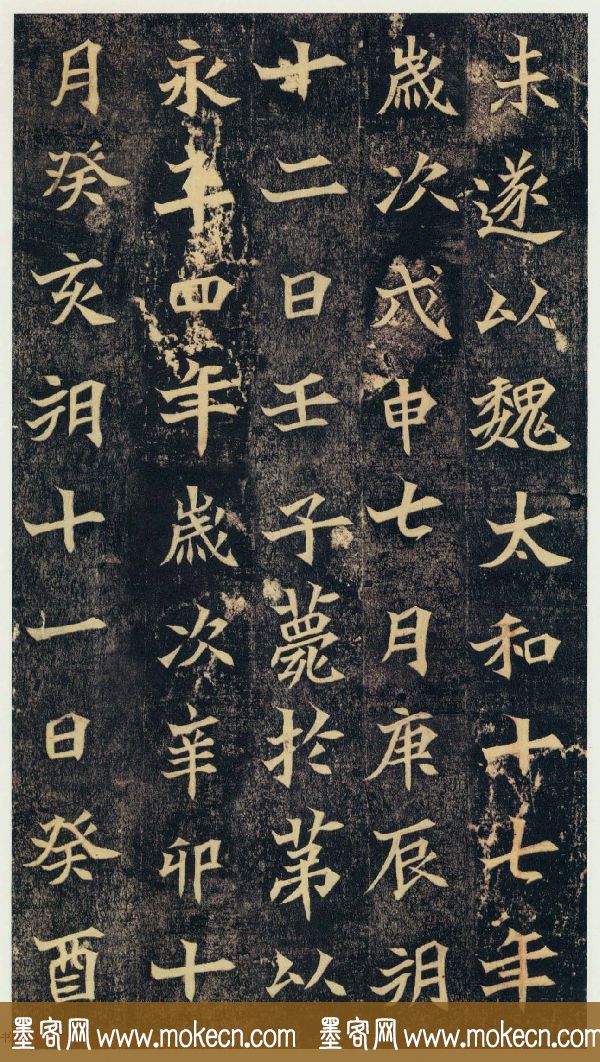 未遂以魏太和十七年
歲次戊申七月庚辰朔
十二日壬子薨於苐以
永平四年歲次辛卯十
月癸亥朔十一日癸酉
墨客网 www.mokecn.com 墨客网 www.mokecn.com